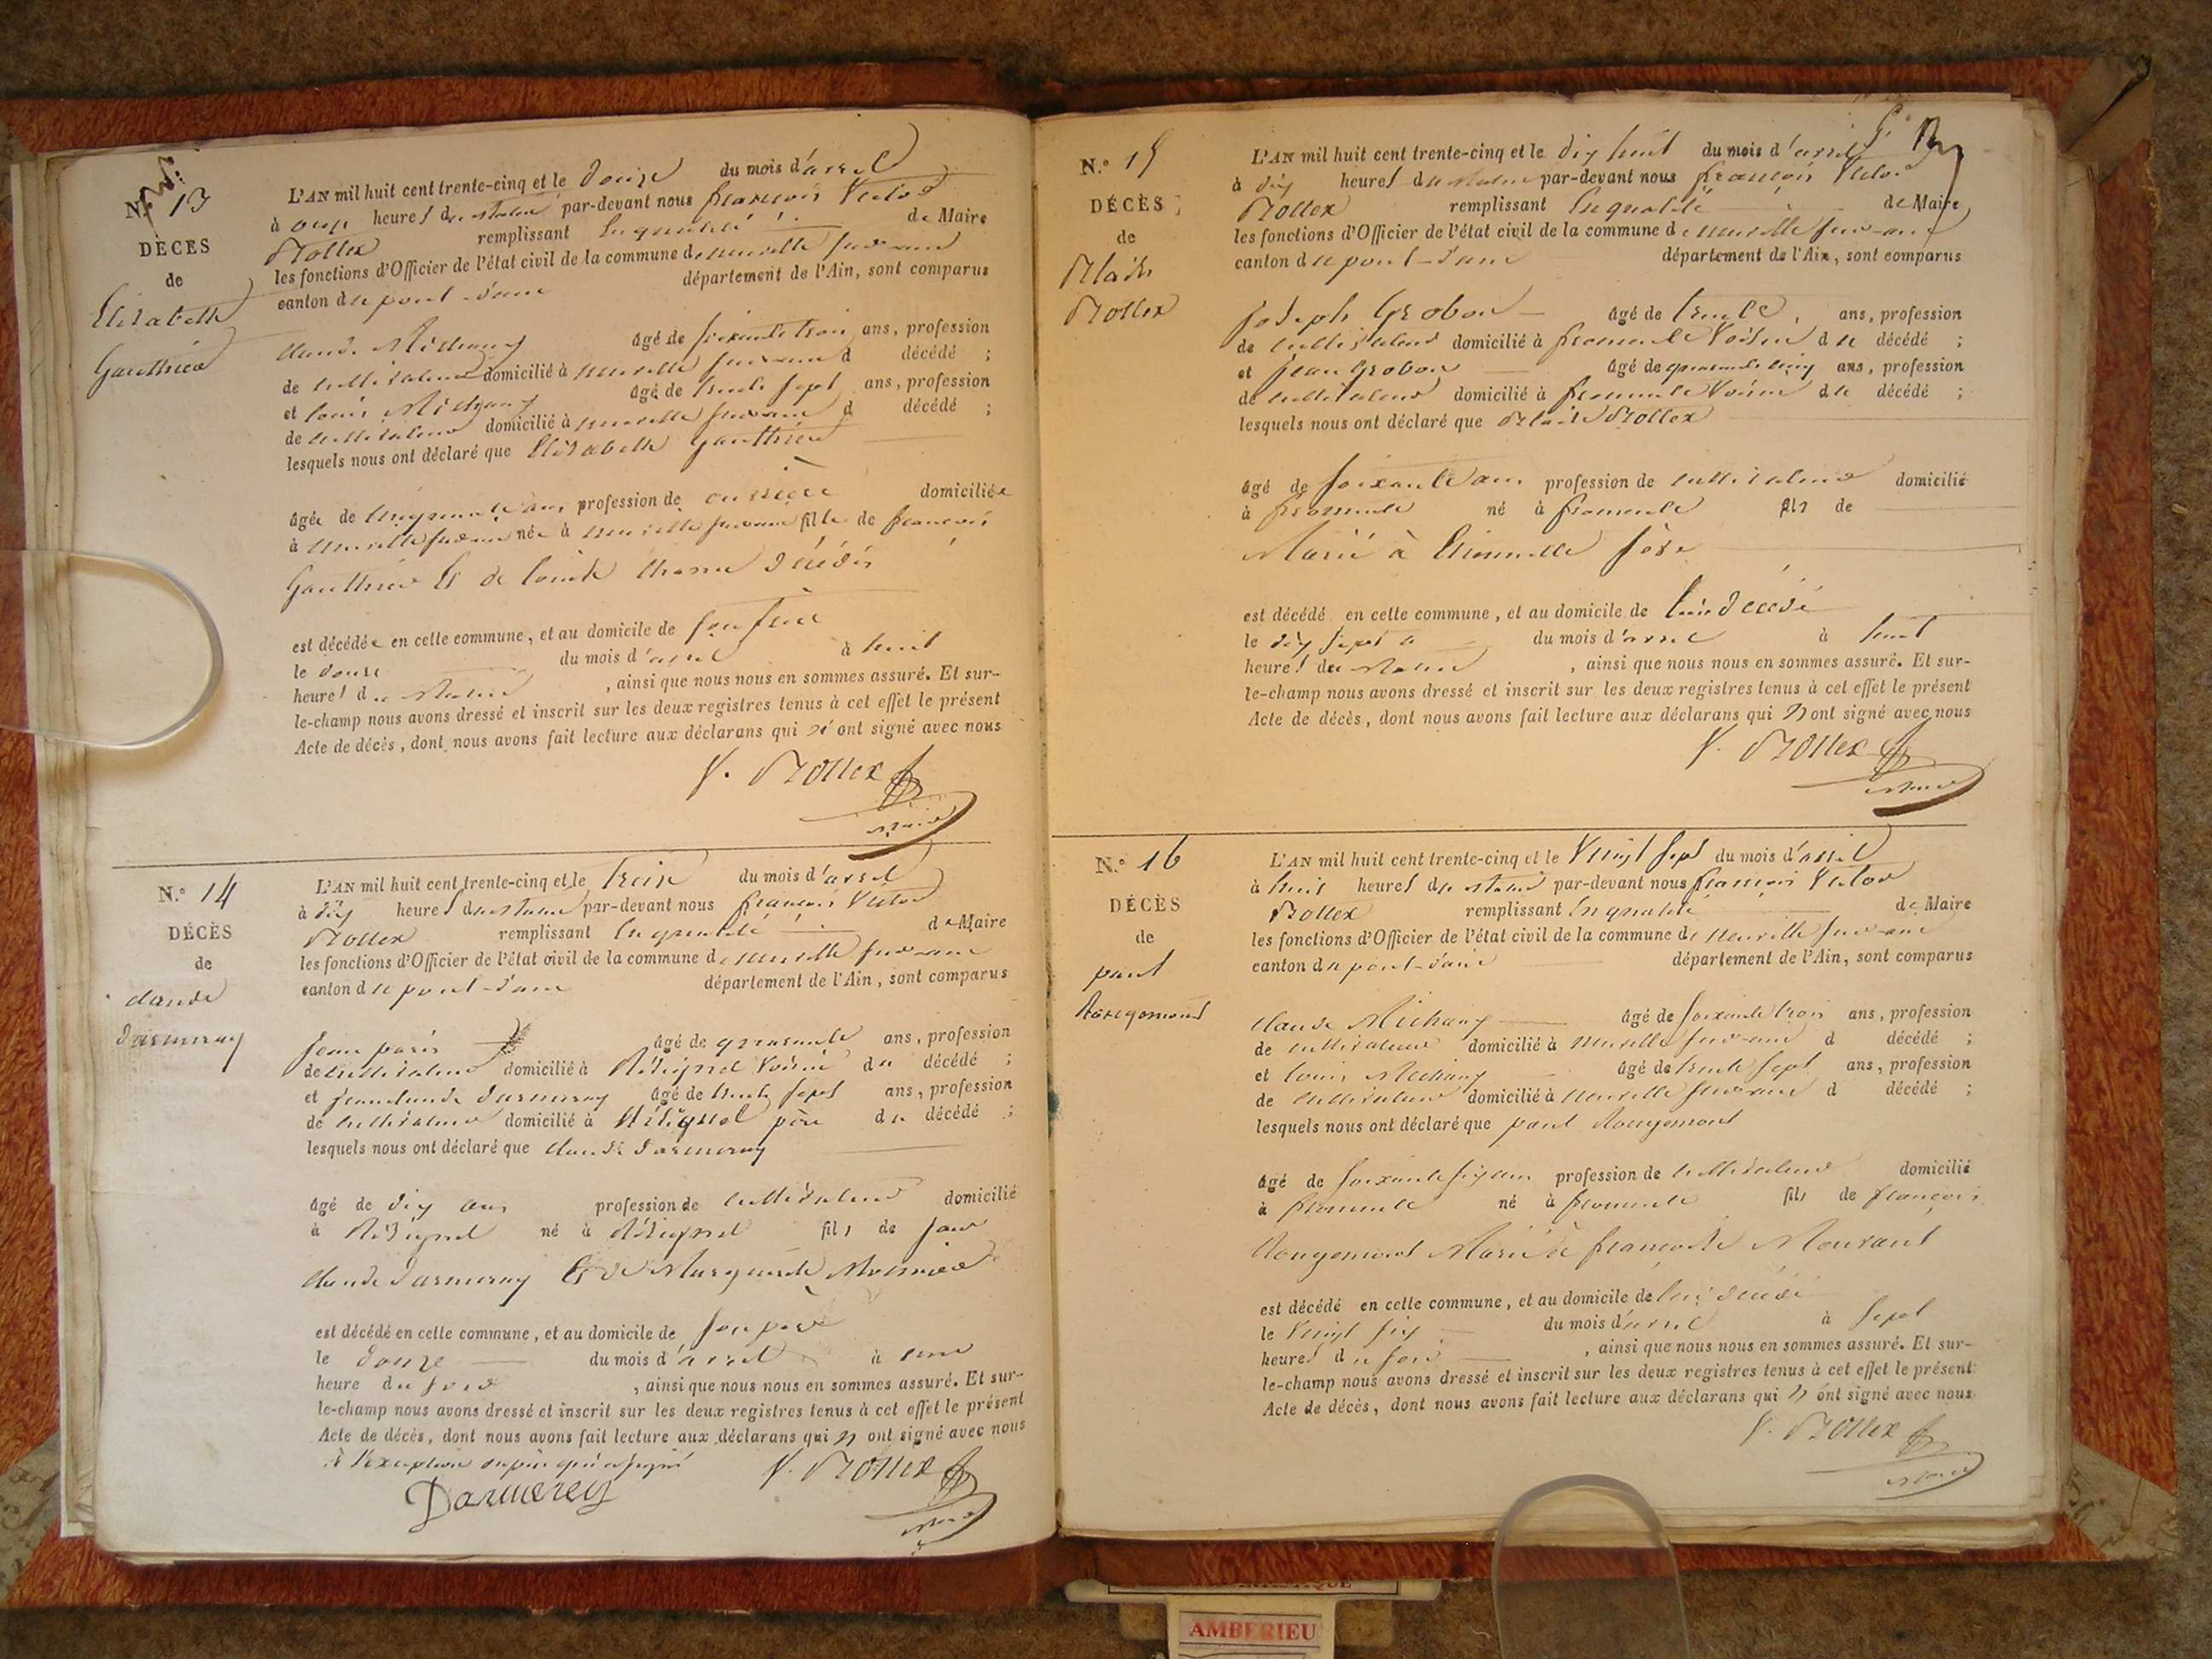 N.º 13
DÉCES
de
Elisabeth
Gauthier
L'AN mil huit cent trente-cinq et le douze du mois d'avril
à onze heures du matin par-devant nous françois Victor
remplissant En qualité de Maire
les fonctions d'Officier de l'état civil de la commune de neuville sur-ain
canton du pont-d'ain département de l'Ain, sont comparus
Claude Michaux âgé de soixante trois ans, profession
de cultivateur domicilié à neuville sur ain d décédé ;
et louis Michaux âgé de trente sept ans, profession
de cultivateur domicilié à neuville sur ain d décédé ;
lesquels nous ont déclaré que Elisabeth Gauthier
âgée de ans, profession de domiciliée
à neuville sur ain née à neuville sur ain fille de francois
Gauthier Et de décédés
est décédée en cette commune, et au domicile de son
le douze du mois d'avril à huit
heures du matin, ainsi que nous nous en sommes assuré. Et sur-
le-champ nous avons dressé et inscrit sur les deux registres tenus à cet effet le présent
Acte de décès, dont nous avons fait lecture aux déclarans qui n'ont signé avec nous
maire
N.º 14
DÉCÈS
de
claude
Darmerey
L'AN mil huit cent trente-cinq et le treize du mois d'avril
à dix heures du matin par-devant nous francois Victor
remplissant En qualité de Maire
les fonctions d'Officier de l'état civil de la commune de neuville sur-ain
canton du pont-d'ain département de l'Ain, sont comparus
Jean paris âgé de quarante ans, profession
de cultivateur domicilié à Résignel Voisin du décédé ;
et jean claude Darmerey âgé de trente sept ans, profession
de cultivateur domicilié à père du décédé ;
lesquels nous ont déclaré que claude Darmerey
âgé de dix ans profession de cultivateur domicilié
à né à fils de jean
claude Darmerey Et de Marguerite
est décédé en cette commune, et au domicile de son père
le douze du mois d'avril à une
heure du soir, ainsi que nous nous en sommes assuré. Et sur-
le-champ nous avons dressé et inscrit sur les deux registres tenus à cet effet le présent
Acte de décès, dont nous avons fait lecture aux déclarans qui n ont signé avec nous
à l'exception du père qui a signé
Darmerey
maire
N.º 15
DÉCÈS
de
L'AN mil huit cent trente-cinq et le dix huit du mois d'avril
à dix heures du matin par-devant nous francois Victor
remplissant En qualité de Maire
les fonctions d'Officier de l'état civil de la commune de neuville sur-ain
canton du pont-d'ain département de l'Ain, sont comparus
Joseph Grobon âgé de trente ans, profession
de cultivateur domicilié à fromente Voisin du décédé ;
et jean Grobon âgé de quarante cinq ans, profession
de cultivateur domicilié à fromente Voisin du décédé ;
lesquels nous ont déclaré que
âgé de soixante ans profession de cultivateur domicilié
à fromente né à fromente fils de
Marié à
est décédé en cette commune, et au domicile de lui décédé
le dix sept du mois d'avril à huit
heures du matin, ainsi que nous nous en sommes assuré. Et sur-
le-champ nous avons dressé et inscrit sur les deux registres tenus à cet effet le présent
Acte de décès, dont nous avons fait lecture aux déclarans qui n ont signé avec nous
maire
N.º 16
DÉCÈS
de
paul
Rougemont
L'AN mil huit cent trente-cinq et le Vingt sept du mois d'avril
à huit heures du matin par-devant nous françois Victor
remplissant En qualité de Maire
les fonctions d'Officier de l'état civil de la commune de neuville sur-ain
canton du pont-d'ain département de l'Ain, sont comparus
Claude Michaux âgé de soixante trois ans, profession
de cultivateur domicilié à neuville sur-ain d décédé ;
et louis Michaux âgé de trente sept ans, profession
de cultivateur domicilié à neuville sur-ain d décédé ;
lesquels nous ont déclaré que paul Rougemont
âgé de soixante six ans profession de cultivateur domicilié
à fromente né à fromente fils de françois
Rougemont Marié à françoise
est décédé en cette commune, et au domicile de lui décédé
le Vingt six du mois d'avril à sept
heures du soir, ainsi que nous nous en sommes assuré. Et sur-
le-champ nous avons dressé et inscrit sur les deux registres tenus à cet effet le présent
Acte de décès, dont nous avons fait lecture aux déclarans qui n ont signé avec nous
maire
AMBERIEU